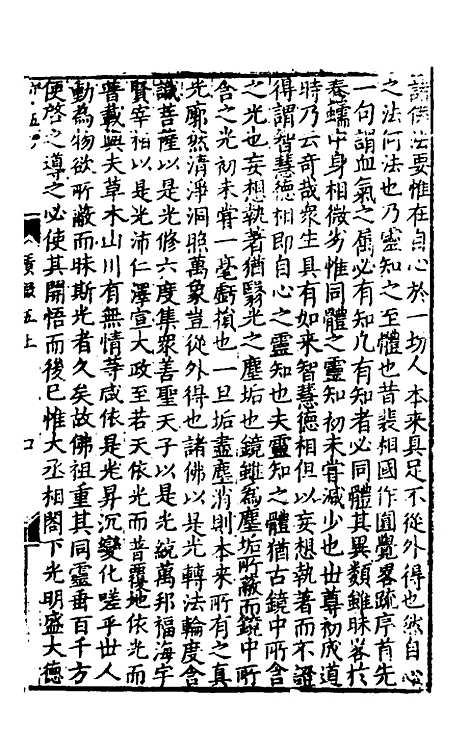 諸佛法要惟在自心於一切人本來具足不從外得也然自心
之法何法也乃靈知之至體也昔裴相國作圓覺畧疏序首先
一句謂血氣之屬必有知凡有知者必同體其異類雖昧畧於
蠢蠕中身相微劣惟同體之靈知初未嘗減少也世尊初成道
時乃云奇哉衆生具有如來智慧德相但以妄想執著而不證
得謂智慧德相即自心之靈知也夫靈知之體猶古鏡中所含
之光也妄想執著猶翳光之塵垢也鏡雖為塵垢所蔽而鏡中所
含之光初未嘗一毫虧損也一旦垢盡塵消則本來所有之真
光廓然清淨洞照萬象豈從外得也諸佛以是光轉法輪度含
識菩薩以是光修六度集衆善聖天子以是光統萬邦福海宇
賢宰相以是光沛仁澤宣大政至若天依光而普覆地依光而
普載與夫草木山川有無情等咸依是光昇沉變化嗟乎世人
動為物欲所蔽而昧斯光者久矣故佛祖重其同靈垂百千方
便啓之導之必使其開悟而後已惟大丞相閣下光明盛大德
廣錄五上